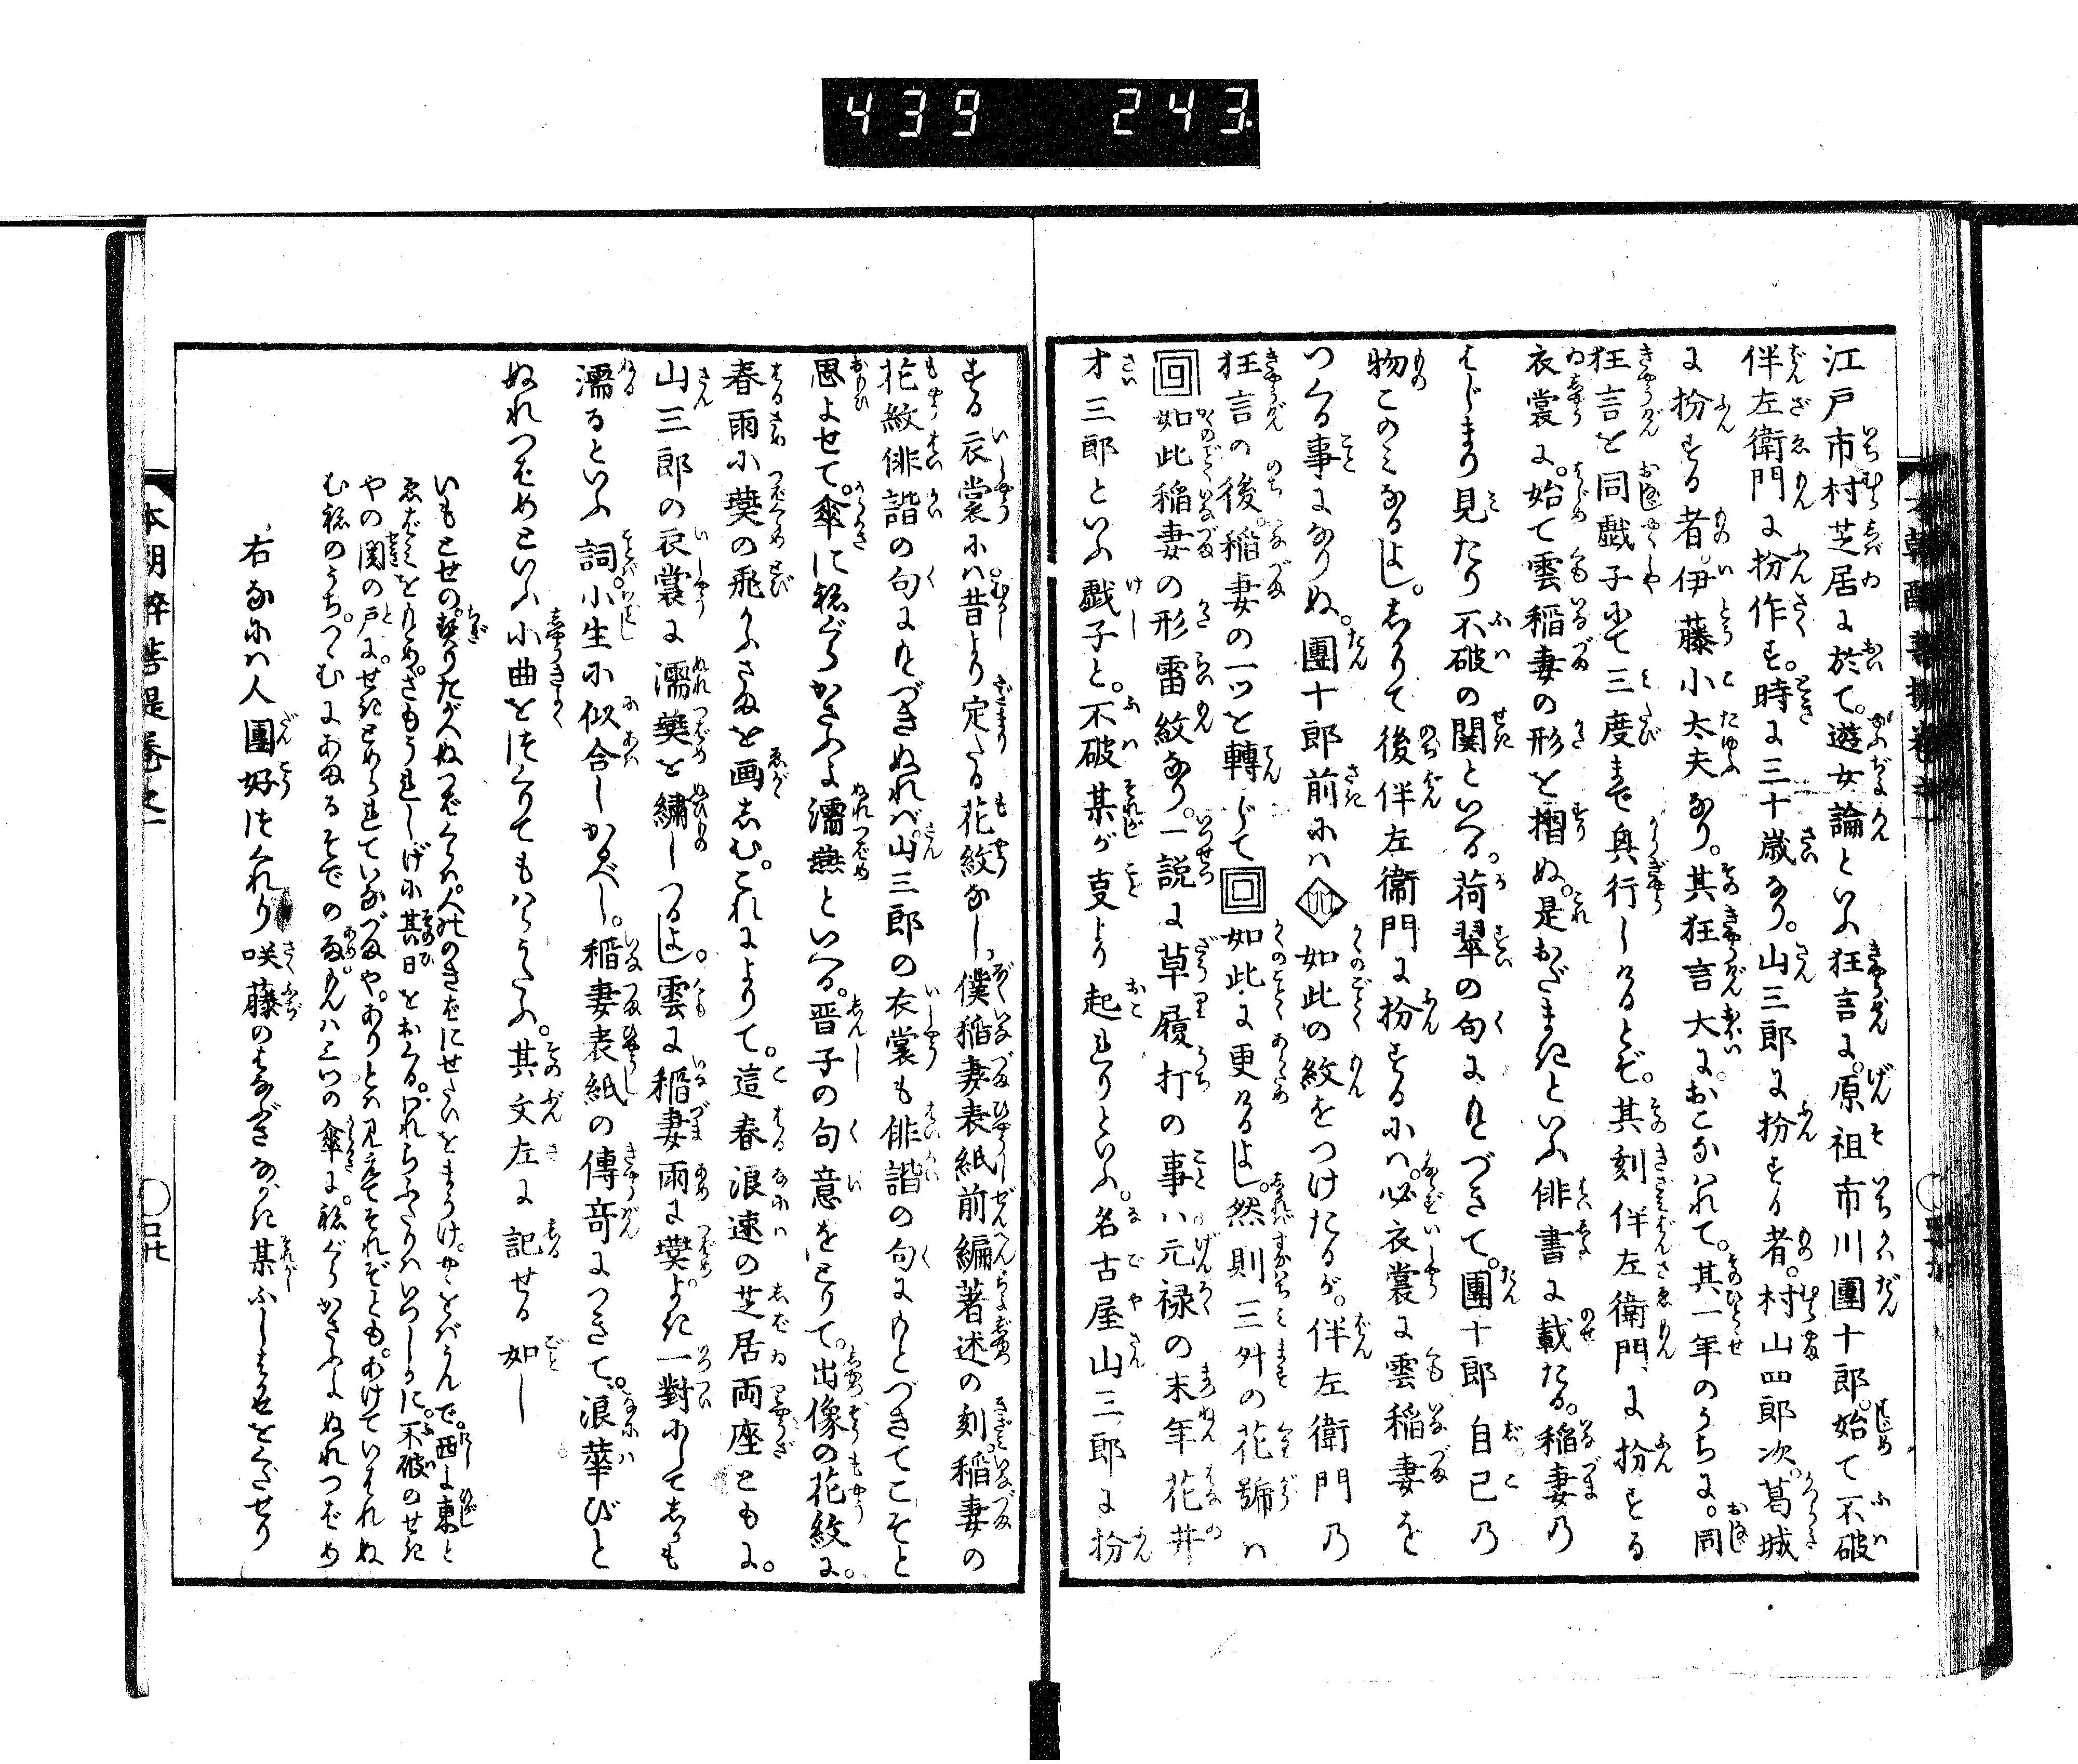 439 243
江戸市村芝居に於て。遊女論といふ狂言に。原祖市川團十郎。始て不破
伴左衛門に扮作す。時に三十歳なり。山三郎に扮する者。村山四郎次。葛城
に扮する者。伊藤小太夫なり。其狂言大におこなはれて。其一年のうちに。同
狂言を同戯子にて三度まで興行しけるとぞ。其刻伴左衛門に扮する
衣裳に。始て雲稲妻の形を摺ぬ。是おだまきといふ俳書に載たる。稲妻の
はじまり見たり不破の関といへる。荷翠の句にもとづきて。團十郎自己の
物このみなるよし。しかりて後伴左衛門に扮するには。必衣裳に雲稲妻を
つくる事になりぬ。團十郎前には 如此の紋をつけたるが。伴左衛門の
狂言の後。稲妻の一ツを轉じて 回 如此に更けるよし。然則三舛の花號は
回 如此稲妻の形雷紋なり。一説に草履打の事は元禄の末年花井
才三郎といふ戯子と。不破某が叓より起れりといふ。名古屋山三郎に扮
する衣裳には昔より定たる花紋なし。僕稲妻表紙前編著述の刻。稲妻の
花紋俳諧の句にもとづきぬれバ。山三郎の衣裳も俳諧の句にもとづきてこそと
思よせて。傘に塒かさふよ濡燕といへる。晋子の句意をとりて。出像の花紋に。
春雨に燕の飛かふさまを画しむ。これによりて。這春浪速の芝居両座ともに。
山三郎の衣裳に濡燕を繍しつるよし。雲に稲妻雨に燕。よき一對にしてしかも
濡るといふ詞。小生に似合しかるべし。稲妻表紙の傳奇につきて。浪華びと
ぬれつばめといふ小曲をつくりてもはらうたふ。其文左に記せる如し
いもとせの。契りたがへぬつばくらハ。人のきばにせたいをまうけ。
やの関の戸に。せきとめられていなづまや。ありとは見えてそれぞとも。あけていはれぬ
むねのうち。つゝむにあまるそでのあめ。
右なにハ人團好つくれり咲藤のはなぶさながき某ふしはせをくだせり
本朝酔菩提巻之一